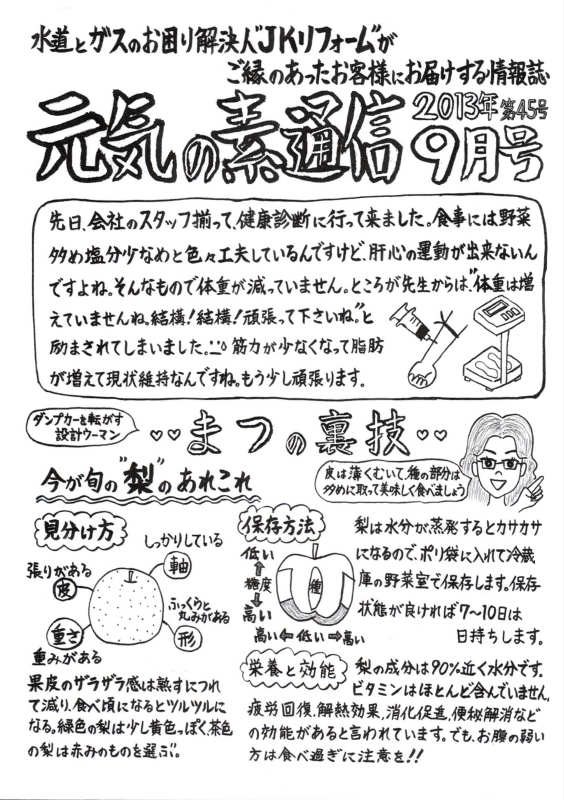 水道とガスのお困り解決人"JKリフォーム"が
ご縁のあったお客様にお届けする情報誌
元気の素通信
2013年 第45号
9月号
先日、会社のスタッフ揃って、健康診断に行って来ました。食事には野菜
多め塩分少なめと色々工夫しているんですけど、肝心の運動が出来ないん
ですよね。そんなもので体重が減っていません。ところが先生からは、"体重は増
えていませんね。結構!結構!頑張って下さいね。"と
励まされてしまいました。筋力が少なくなって脂肪
が増えて現状維持なんですね。もう少し頑張ります。
ダンプカーを転がす
設計ウーマン
♡♡まつの裏技♡♡
皮は薄くむいて、種の部分は
多めに取って美味しく食べましょう
今が旬の"梨"のあれこれ
見分け方
しっかりしている
軸
張りがある
皮
ふっくらと
丸みがある
重さ
形
重みがある
果皮のザラザラ感は熟すにつれ
て減り、食べ頃になるとツルツルに
なる。緑色の梨は少し黄色っぽく、茶色
の梨は赤みのものを選ぶ。
保存方法
低い
⇧
糖度
⇩
高い
種
高い⇦低い⇨高い
梨は水分が蒸発するとカサカサ
になるので、ポリ袋に入れて冷蔵
庫の野菜室で保存します。保存
状態が良ければ7〜10日は
日持ちします。
栄養と効能
梨の成分は90%近く水分です。
ビタミンはほとんど含んでいません。
疲労回復、解熱効果、消化促進、便秘解消など
の効能があると言われています。でも、お腹の弱い
方は食べ過ぎに注意を!!